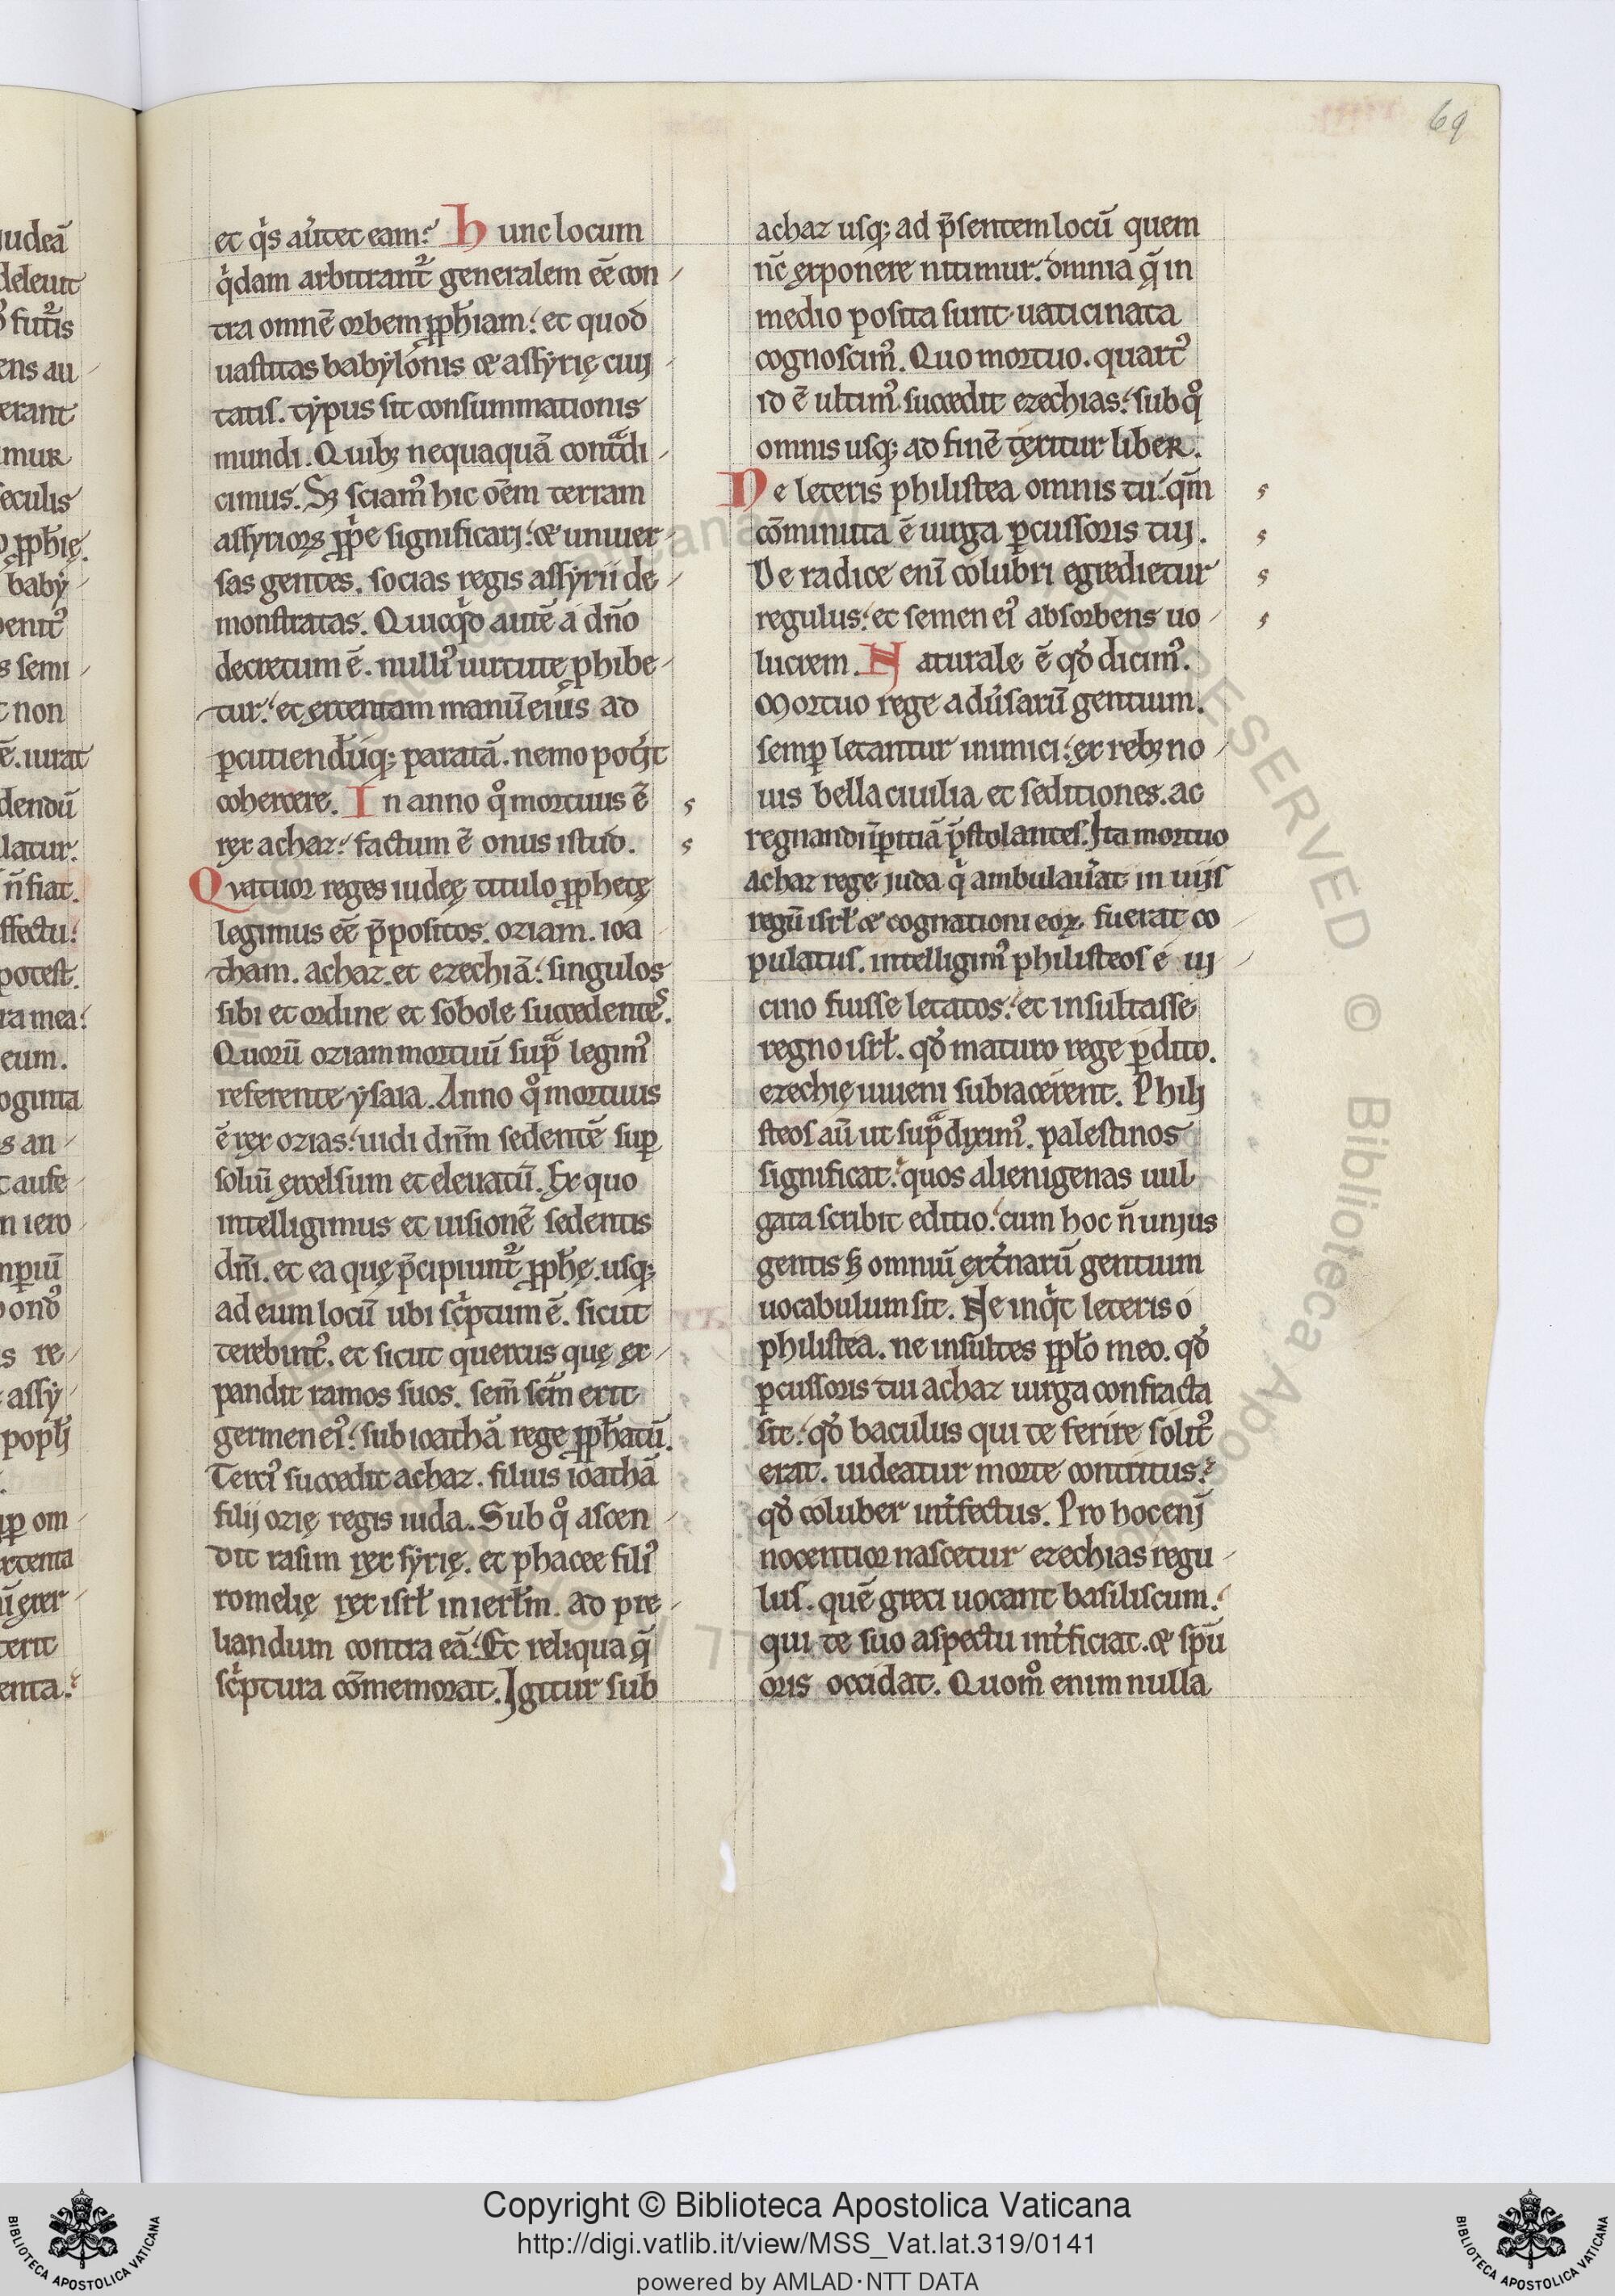 69
et q̇s aủtet eam? Hunc locum
q̇dam arbitrant᷑ generalem eē con-
tra omnē orbem ꝓph̄iam. et quod
uastitas babylonis & assyrię ciuj-
tatis. typus sit consummationis
mundi. Quibꝫ nequaquā contᵃdi-
cimus. Sꝫ sciamꝰ hic oēm terram
assyrioꝝ ꝓpe significarj. & uniuer-
sas gentes. socias regis assyrii de-
monstratas. Quicq̇d autē a dn̄o
decretum ē. nulliꝰ uirtute ꝓhibe-
tur. et extentam manū eius ad
ꝑcutiendūq; paratā. nemo potīt
cohercere. In anno qͦ mortuus ē
rex achaz. factum ē onus istud.
Qvatuor reges iudeę titulo ꝓphetę
legimus eē p̄positos. oziam. ioa-
tham. achaz. et ezechiā. singulos
sibi et ordine et sobole succedentes.
Quorū oziam mortuū supᵃ legimꝰ
referente ysaia. Anno qͦ mortuus
ē rex ozias. uidi dn̄m sedentē suꝑ
soliū excelsum et eleuatū. Ex quo
intelligimus et uisionē sedentis
dn̄i. et ea quę p̄cipiunt᷑ ꝓph̄ę. usq;
ad eum locū ubi sċptum ē. sicut
terebintꝰ. et sicut quercus quę ex-
pandit ramos suos. sem̄ sc̄m erit
germen eiꝰ. sub ioathā rege ꝓph̄atū.
Terciꝰ succedit achaz. filius ioathā
filij ozię regis iuda. Sub qͦ ascen-
dit rasim rex syrię. et phacee filiꝰ
romelię rex isrł in ierłm. ad pre-
liandum contra eā. Et reliqua q̄
sċptura cōmemorat. Igitur sub
achaz usq; ad p̄sentem locū quem
nc̄ exponere nitimur. omnia q̄ in
medio posita sunt uaticinata
cognoscimꝰ. Quo mortuo. quartꝰ
id ē ultimꝰ succedit ezechias. sub qͦ
omnis usq; ad finē texitur liber.
Ne leteris philistea omnis tu. qm̄
cōminuta ē uirga ꝑcussoris tuj.
De radice enī colubri egredietur
regulus. et semen eiꝰ absorbens uo-
lucrem. Naturale ē qd̓ dicimꝰ.
Mortuo rege adủsarū gentium.
semꝑ letantur inimici. ex rebꝫ no-
uis bella ciuilia et seditiones. ac
regnandi īꝑitiā p̄stolantes. Ita mortuo
achaz rege juda q̇ ambulauảt in uijs
regū isrł & cognationi eoꝝ fuerat co-
pulatus. intelligimꝰ philisteos e uj-
cino fuisse letatos. et insultasse
regno isrł. qd̓ maturo rege ꝑdito.
ezechię iuueni subiacerent. Philj
steos aū ut supᵃ diximꝰ. palestinos
significat. quos alienigenas uul
gata scribit editio. cum hoc n̄ unjus
gentis sꝫ omniū ext̓narū gentium
uocabulum sit. Ne inq̇t leteris o
philistea. ne insultes ppło meo. qd̓
ꝑcussoris tui achaz uirga confracta
sit. qd̓ baculus qui te ferire solitꝰ
erat. uideatur morte contritus.
qd̓ coluber int̓fectus. Pro hoc enj̄
nocentior nascetur ezechias regu-
lus. quē greci uocant basiliscum.
qui te suo aspectu int̓ficiat. & spū
oris occidat. Quomͦ enim nulla
Copyright © Biblioteca Apostolica Vaticana
http://digi.vatlib.it/view/MSS_Vat.lat.319/0141
powered by AMLAD·NTT DATA
BIBLIOTECA APOSTOLICA VATICANA
BIBLIOTECA APOSTOLICA VATICANA